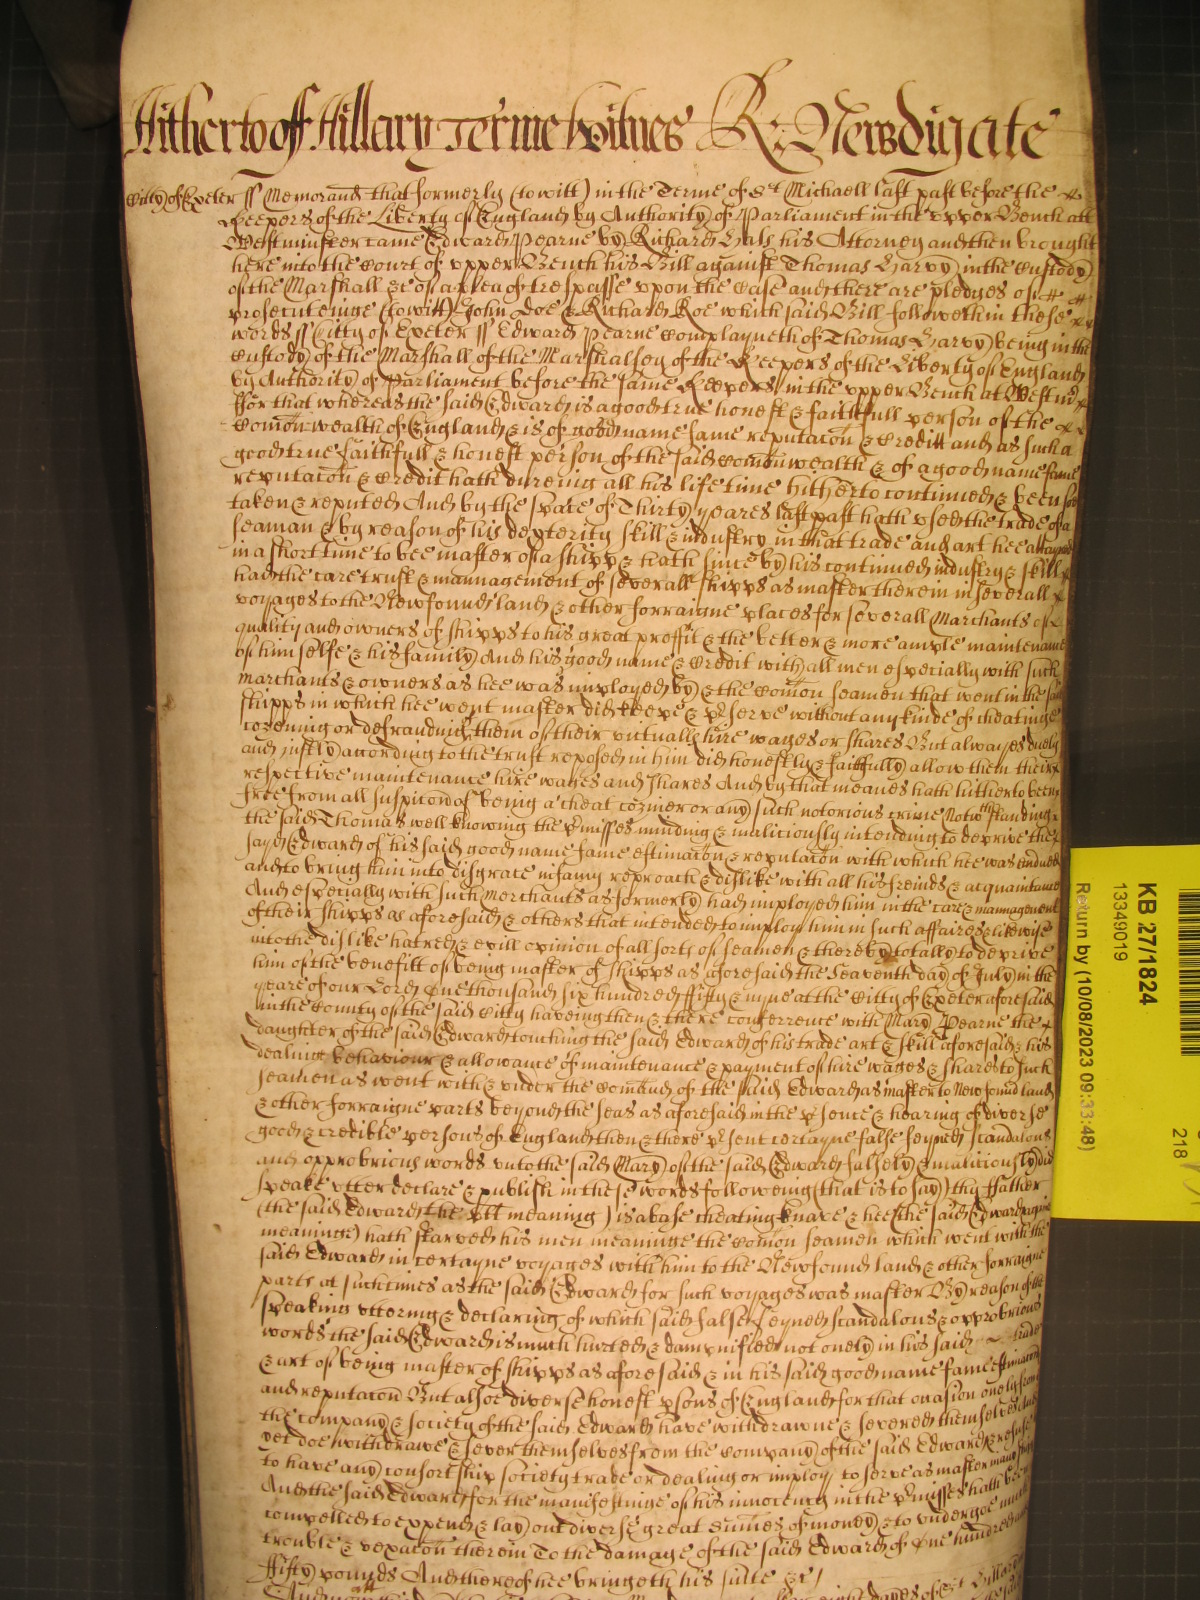 Hitherto off Hillary Terme Witnes R: Newdigate
Citty of Exeter ss Memorand that formerly (to witt) in the Terme of St Michaell last past before the
Keepers of the Liberty of England by Authority of Parliament in the upper Bench att
Westminster came Edward Pearne by Richard Hals his Attorney and then brought
here into the Court of upper Bench his Bill against Thomas Harvy in the Custody
of the Marshall &c of a plea of trespasse upon the Case and there are pledges of
prosecuteinge (to witt) John Doe & Richard Roe which said Bill followeth in these
words ss Citty of Exeter ss Edward Pearne Complayneth of Thomas Harvy being in the
Custody of the Marshall of the Marshalsey of the Keepers of the Liberty of England
by Authority of Parliament before the same Keepers in the upper Bench at Westmr
ffor that whereas the said Edward is a good true honest & faithfull person of the
Comon wealth of England & is of good name fame reputacon & Creditt and as such a
good true faithfull & honest person of the said Comonwealth & of a good name fame
reputacon & Credit hath dureing all his life time hitherto continued & been soe
taken & reputed And by the space of Thirty yeares last past hath used the trade of a
seaman & by reason of his dexterity skill & industry in that trade and art hee attayned
in a short time to bee master of a shipp & hath since by his continued industry & skill
had the care trust & mannagement of severall shipps as master therein in severall
voyages to the Newfound land & other forraigne places for severall Marchants of
quality and owners of shipps to his great proffit & the better & more ample maintenance
of himselfe & his family And his good name & Credit with all men especially with such
marchants & owners as hee was imployed by & the Comon seamen that went in the said
shipps in which hee went master did keepe & pserve without any kinde of cheatinge
cozening or defrauding them of their victualls hire wages or shares But alwayes duely
and justly according to the trust reposed in him did honestly & faithfully allow them their
respective maintenance hire wages and shares And by that meanes hath hitherto been
free from all suspicon of being a cheat cozener or any such notorious crime Notwthstanding
the said Thomas well knowing the pmisses minding & maliciously intending to deprive the
sayd Edward of his said good name fame estimacon & reputacon with which hee was endued
and to bring him into disgrace infamy reproach & dislike with all his freinds & acquaintance
And especially with such Merchants as formerly had imployed him in the care & mannagement
of their shipps as aforesaid & others that intended to imploy him in such affaires & likewise
into the dislike hatred & evill opinion of all sorts of seamen & thereby totally to deprive
him of the benefitt of being master of shipps as aforesaid the Seaventh day of July in the
yeare of our Lord One thousand six hundred ffifty & nyne at the Citty of Exeter aforesaid
in the County of the said Citty haveing then & there conferrence with Mary Pearne the
daughter of the said Edward touching the said Edward of his trade art & skill aforesaid & his
dealing behaviour & allowance of maintenance & payment of hire wages & shares to such
seamen as went with & under the Comand of the said Edward as master to New found land
& other forraigne parts beyond the seas as aforesaid in the psence & hearing of diverse
good & credible persons of England then & there psent certayne false feyned scandalous
and opprobrious words unto the said Mary of the said Edward falsely & maliciously did
speake utter declare & publish in these words followeing (that is to say) thy ffather
(the said Edward the plt meaning) is a base cheating knave & hee (the said Edward againe
meaninge) hath starved his men meaninge the Comon seamen which went with the
said Edward in certayne voyages with him to the Newfound land & other forraigne
parts at such times as the said Edward for such voyages was master By reason of the
speaking uttering & declaring of which said false feyned scandalous & opprobrious
words the said Edward is much hurted & dampnified not onely in his said trade
& art of being master of shipps as aforesaid & in his said good name fame estimacon
and reputacon But alsoe diverse honest psons of England for that occasion onely from
the company & society of the said Edward have withdrawne & severed themselves And
yet doe withdrawe & sever themselves from the Company of the said Edward & refuse
to have any consortship society trade or dealing or imploy to serve as master
And the said Edward for the manifestinge of his innocency in the pmisses hath been
compelled to expend & lay out diverse great sumes of money & to undergoe much
trouble & vexacon therein To the damage of the said Edward of One hundred and
ffifty pounds And thereof hee bringeth his suite &c
KB 27/1824
13349019
Return by (10/08/2023 09:33:48)
218